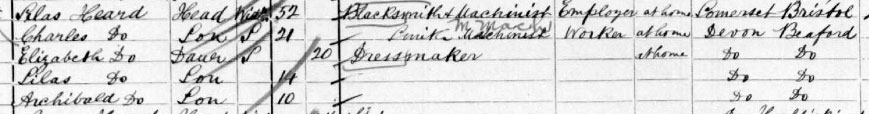 Silas Heard Head Widr 52 Blacksmith & Machinist Employer at home Somerset Bristol
Charles Do Son S 21 Smith Machinist Worker at home Devon Beaford
Elizabeth Do Daur S 20 Dressmaker at home Do Do
Silas Do Son 14 Do Do
Archibald Do Son 10 Do Do